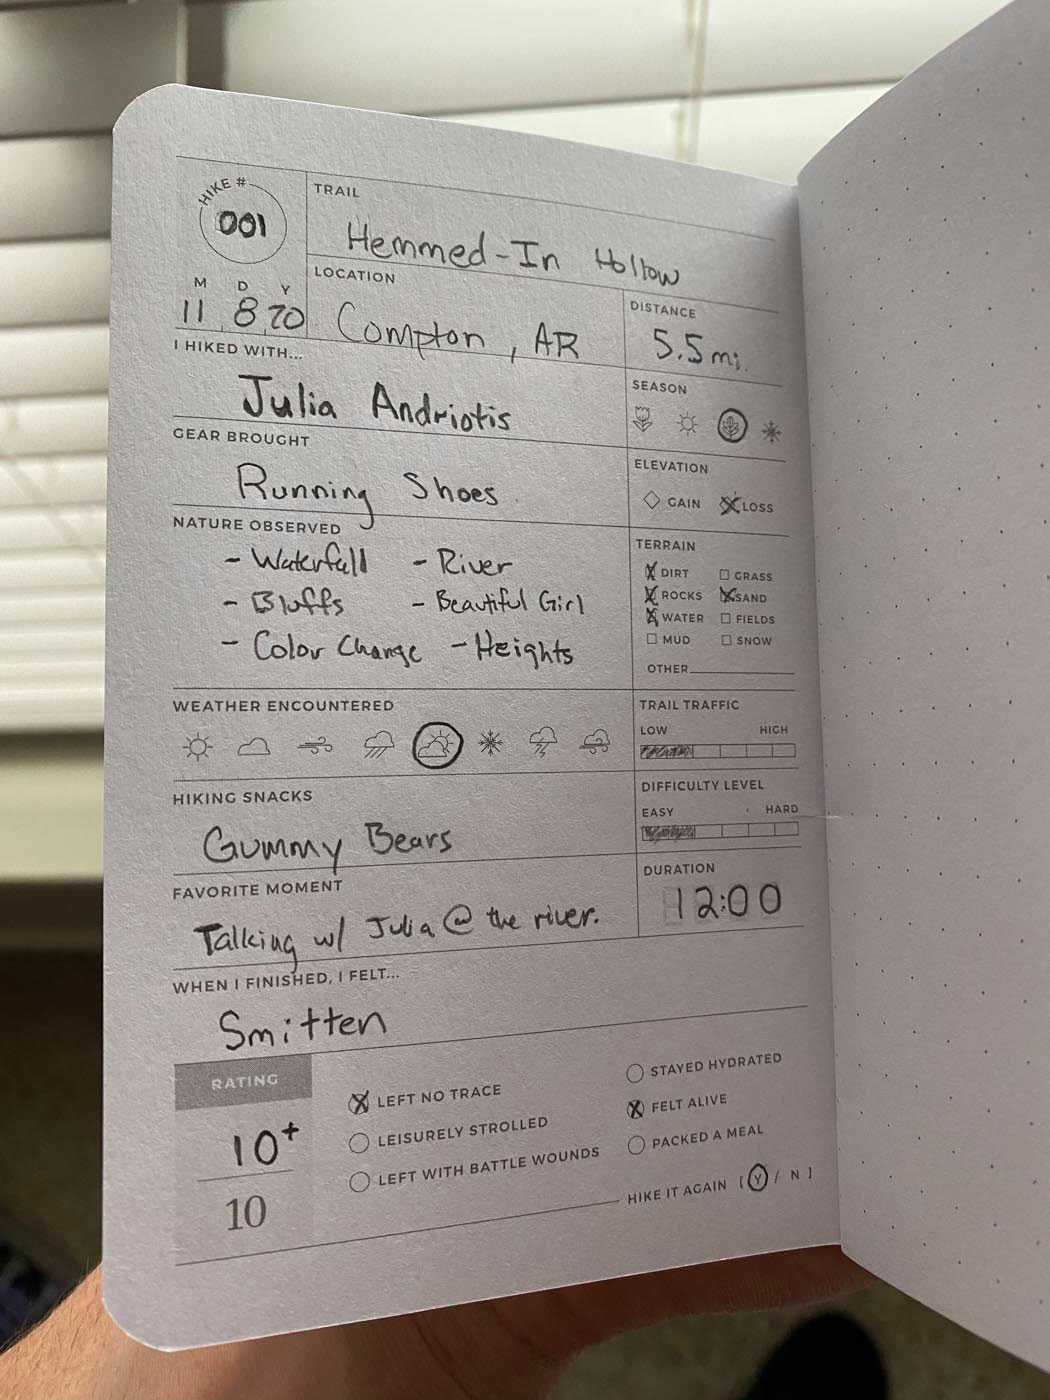 HIKE #
001
TRAIL
Hemmed-In Hollow
M D Y
11 8 20
LOCATION
Compton, AR
DISTANCE
5.5 mi.
I HIKED WITH...
Julia Andriotis
SEASON
GEAR BROUGHT
Running Shoes
ELEVATION
GAIN LOSS
NATURE OBSERVED
- Waterfall - River
- Bluffs - Beautiful Girl
- Color Change - Heights
TERRAIN
DIRT GRASS
ROCKS SAND
WATER FIELDS
MUD SNOW
OTHER
WEATHER ENCOUNTERED
TRAIL TRAFFIC
LOW HIGH
HIKING SNACKS
Gummy Bears
DIFFICULTY LEVEL
EASY HARD
FAVORITE MOMENT
Talking w/ Julia @ the river.
DURATION
12:00
WHEN I FINISHED, I FELT...
Smitten
RATING
10+
10
LEFT NO TRACE
LEISURELY STROLLED
LEFT WITH BATTLE WOUNDS
STAYED HYDRATED
FELT ALIVE
PACKED A MEAL
HIKE IT AGAIN [ Y / N ]